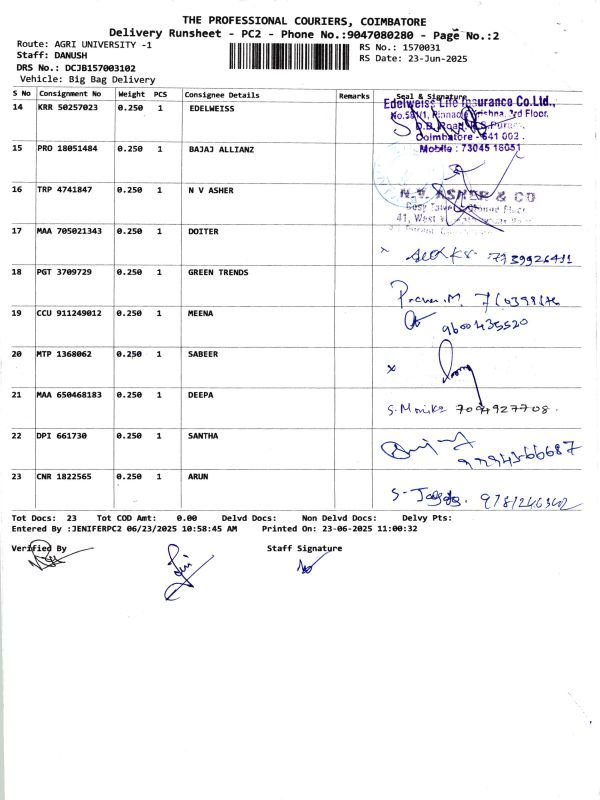 THE PROFESSIONAL COURIERS, COIMBATORE
Delivery Runsheet - PC2 - Phone No.:9047080280 - Page No.:2
Route: AGRI UNIVERSITY -1
RS No.: 1570031
Staff: DANUSH
RS Date: 23-Jun-2025
DRS No.: DCJB157003102
Vehicle: Big Bag Delivery
S No Consignment No Weight PCS Consignee Details Remarks Seal & Signature
14 KRR 50257023 0.250 1 EDELWEISS
Edelweiss Life Insurance Co.Ltd.,
3rd Floor,
Coimbatore - 641 002.
Mobile : 73045 16051
15 PRO 18051484 0.250 1 BAJAJ ALLIANZ
16 TRP 4741847 0.250 1 N V ASHER
N.V. ASHER & CO
41, West
17 MAA 705021343 0.250 1 DOITER
18 PGT 3709729 0.250 1 GREEN TRENDS
19 CCU 911249012 0.250 1 MEENA
9600435520
20 MTP 1368062 0.250 1 SABEER
x
21 MAA 650468183 0.250 1 DEEPA
S. Monika 7094927708.
22 DPI 661730 0.250 1 SANTHA
23 CNR 1822565 0.250 1 ARUN
Tot Docs: 23 Tot COD Amt: 0.00 Delvd Docs: Non Delvd Docs: Delvy Pts:
Entered By :JENIFERPC2 06/23/2025 10:58:45 AM Printed On: 23-06-2025 11:00:32
Verified By Staff Signature